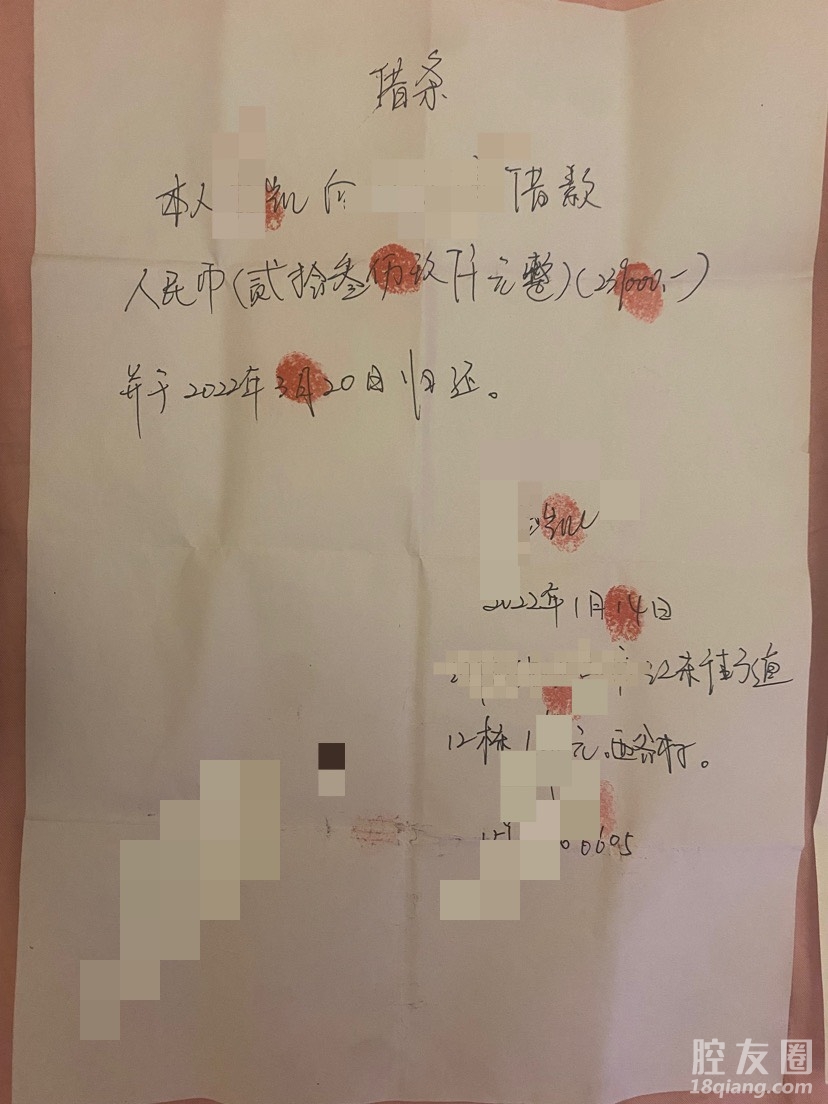 借条
本人 凯 今 借款
人民币(贰拾叁仿玖仟元整)(239000.-)
并于2022年3月20日归还。
浩凯
2022年1月14日
江东街道
12栋1 元 西谷村。
00605
腔友圈
18qiang.com